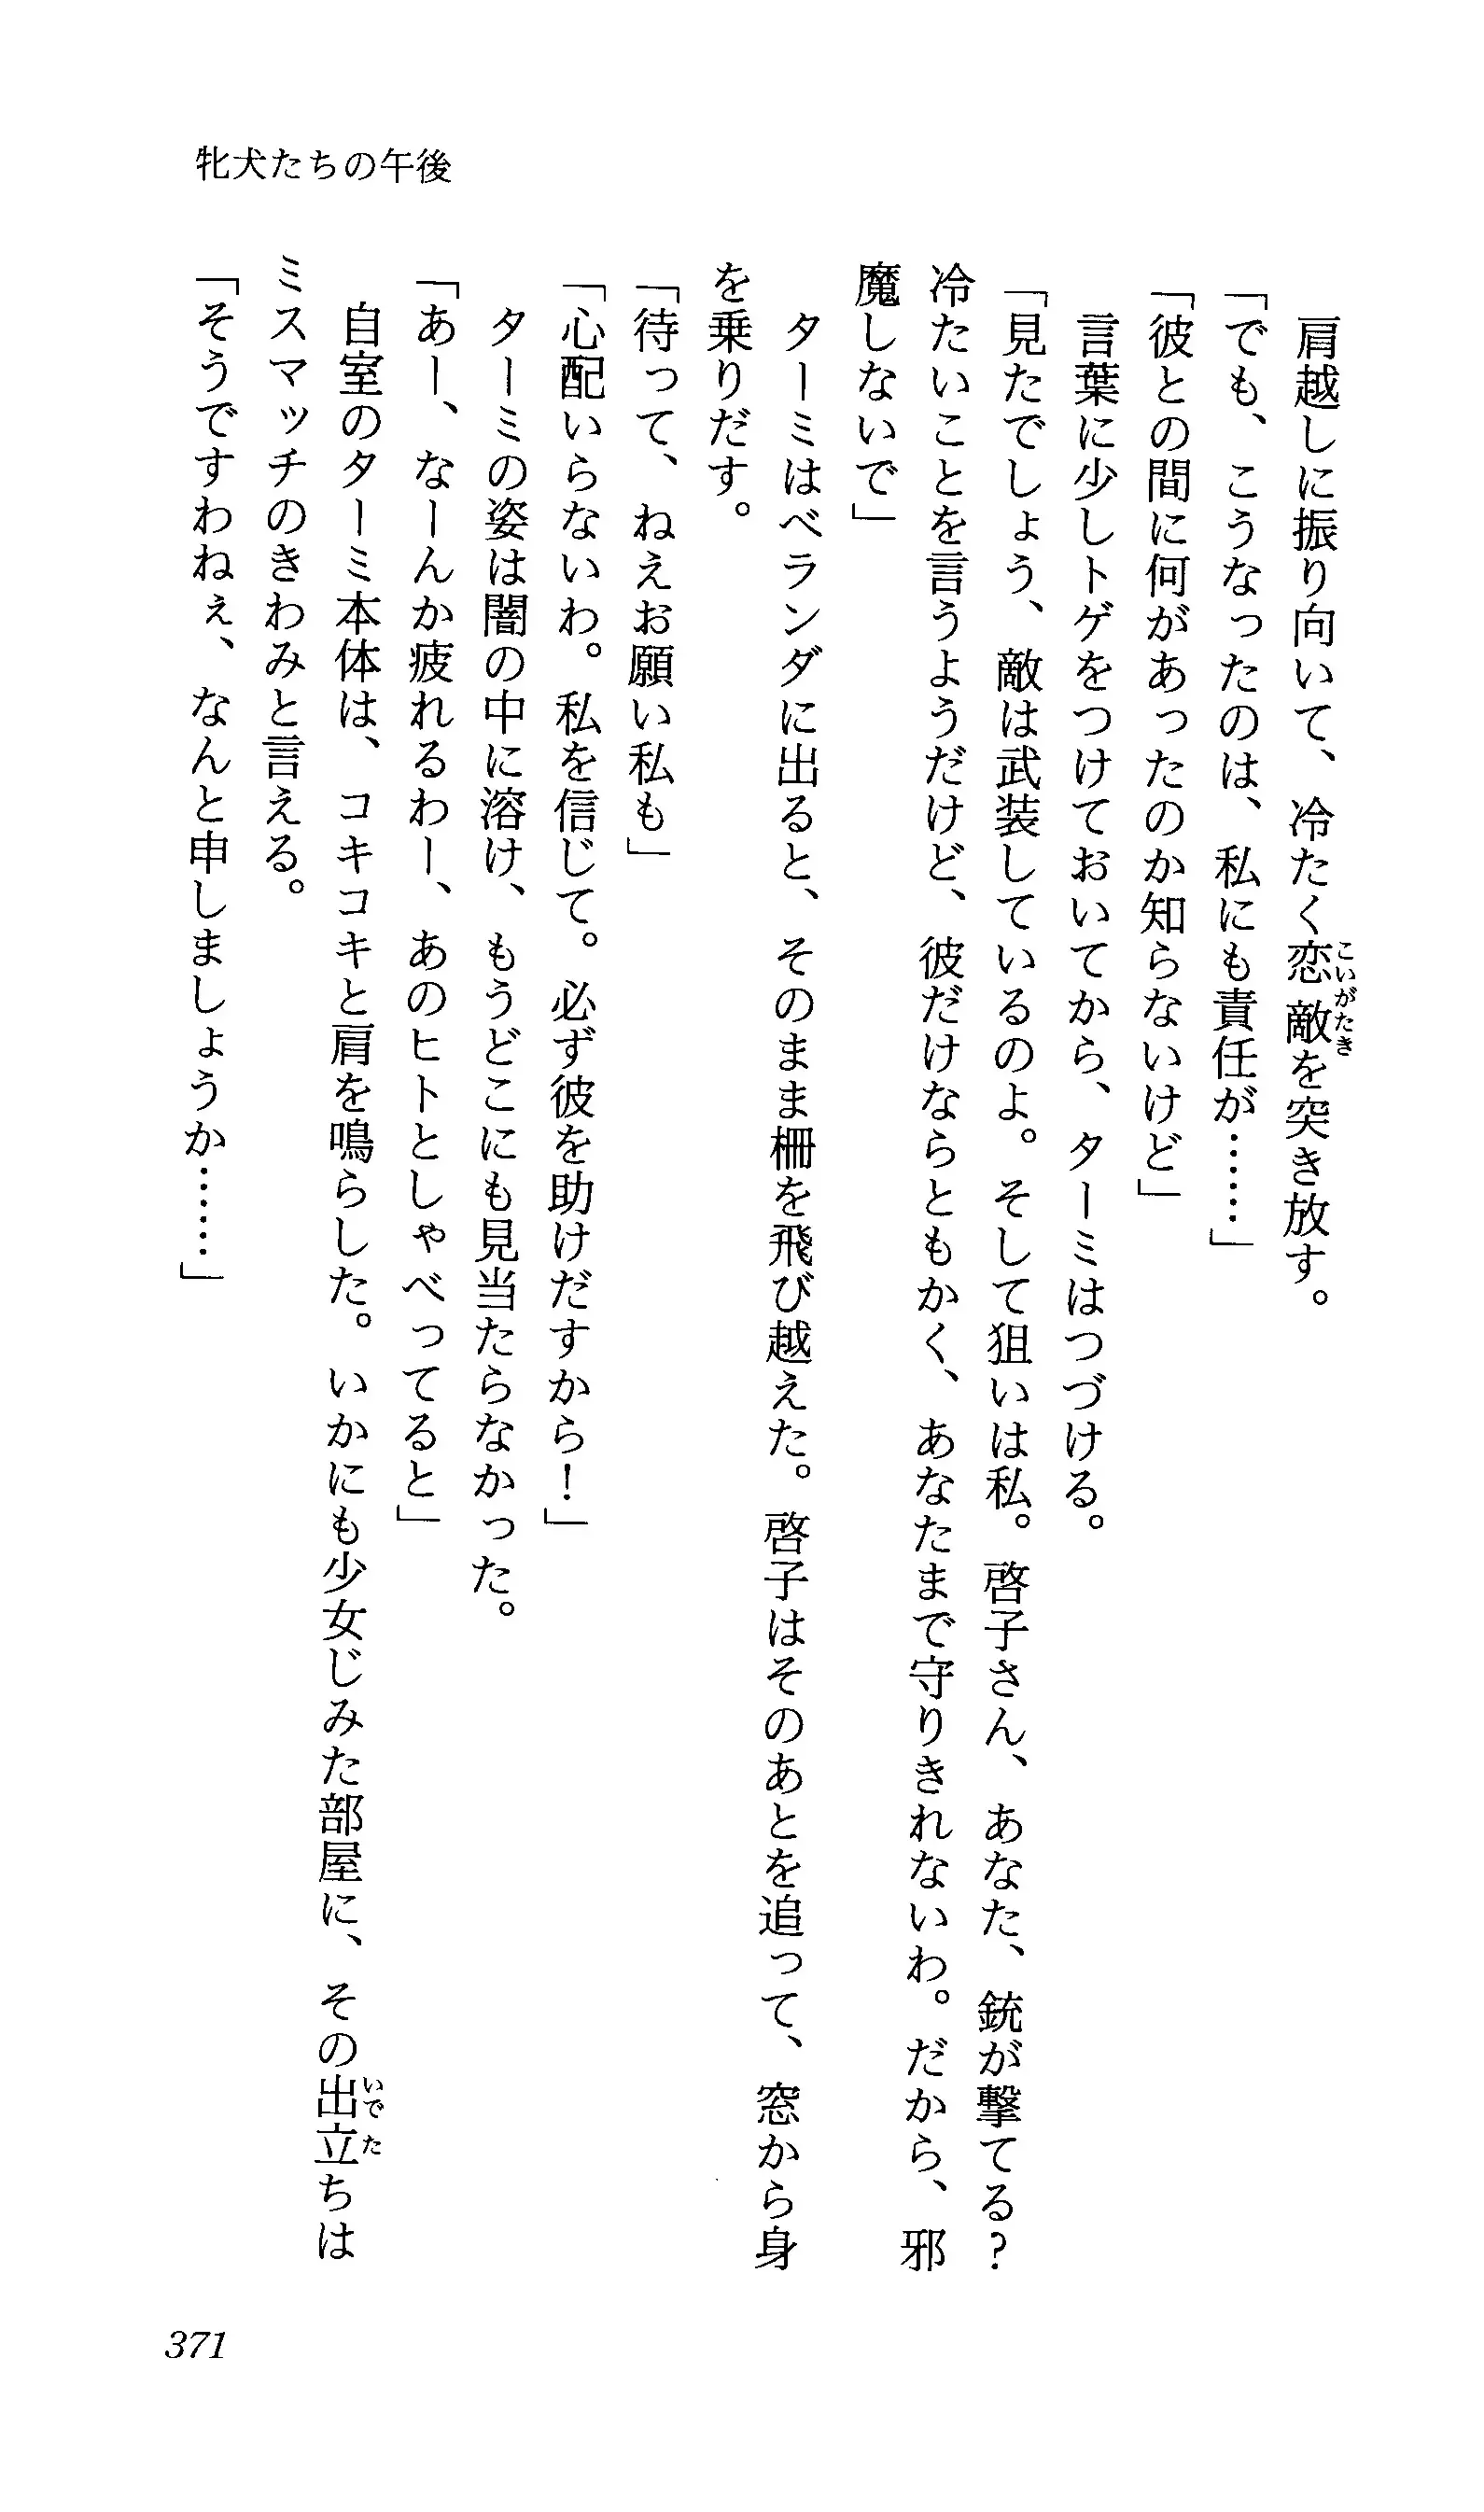 牝犬たちの午後
肩越しに振り向いて、冷たく恋敵を突き放す。
「でも、こうなったのは、私にも責任が……」
「彼との間に何があったのか知らないけど」
言葉に少しトゲをつけておいてから、ターミはつづける。
「見たでしょう、敵は武装しているのよ。そして狙いは私。啓子さん、あなた、銃が撃てる?
冷たいことを言うようだけど、彼だけならともかく、あなたまで守りきれないわ。だから、邪
魔しないで」
ターミはベランダに出ると、そのまま柵を飛び越えた。啓子はそのあとを追って、窓から身
を乗りだす。
「待って、ねえお願い私も」
「心配いらないわ。私を信じて。必ず彼を助けだすから!」
ターミの姿は闇の中に溶け、もうどこにも見当たらなかった。
「あー、なーんか疲れるわー、あのヒトとしゃべってると」
自室のターミ本体は、コキコキと肩を鳴らした。いかにも少女じみた部屋に、その出立ちは
ミスマッチのきわみと言える。
「そうですわねぇ、なんと申しましょうか……」
こいがたき
いでた
371